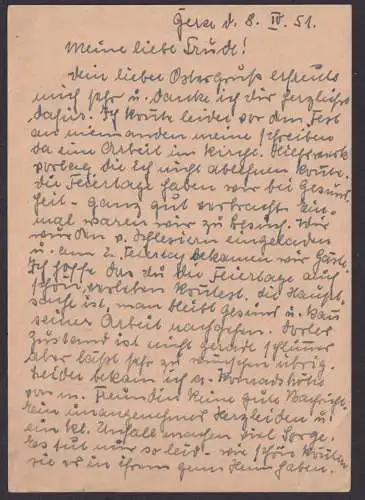 Gera d. 8. IV. 51.
Meine liebe Trude!
Dein lieber Ostergruß erfreute
mich sehr u. danke ich dir herzlichst
dafür. Ich konnte leider vor dem Fest
an niemanden meine schreiben
da eine Arbeit im kirchl. Hilfswerk
vorlag, die ich nicht ablehnen konnte.
Die Feiertage haben wir bei Gesund-
heit - ganz gut verbracht. Ein-
mal waren wir zu Besuch. Wir
wurden v. Schlesiern eingeladen
u. am 2. Feiertag bekamen wir Gäste.
Ich hoffe das du die Feiertage auch
schön verleben konntest. Die Haupt-
sache ist, man bleibt gesund u. kann
seiner Arbeit nachgehen.
Zustand ist nicht gerade schlimm
aber läßt sehr zu wünschen übrig.
Leider bekam ich a.
von m. Freundin keine gute Nachricht.
Kein unangenehmes Herzleiden u.
ein kl. Unfall machen viel Sorge.
Es tut mir so leid - wie schön könnte
sie es in ihrem Heim haben.